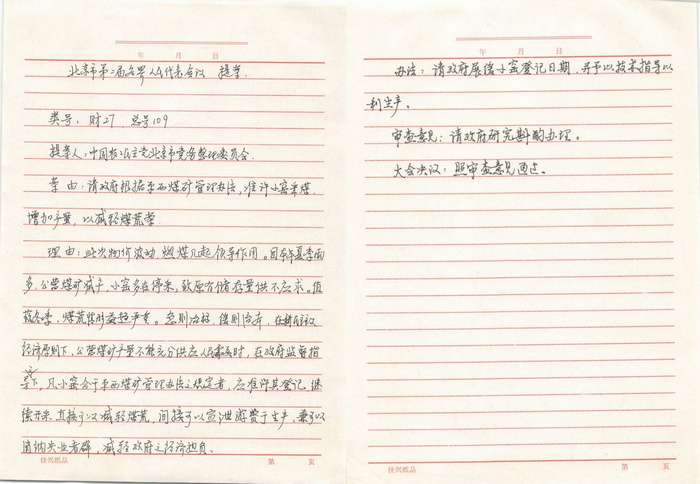 年 月 日
北京市第二届各界人民代表会议 提案
类号：财27 总号109
提案人：中国农工民主党北京市党务整理委员会
案由：请政府根据平西煤矿管理办法，准许小窑采煤，
增加产量，以减轻煤荒案
理由：此次物价波动，燃煤几起领导作用。因本年夏季雨
多，公营煤矿减产，小窑多在停采，致原有储存量供不应求。值
兹冬季，煤荒情形益趋严重。急则治标，缓则治本，在新民主主义
经济原则下，公营煤矿产量不能充分供应人民需要时，在政府监督指
导下，凡小窑合于平西煤矿管理办法之规定者，应准许其登记，继
续开采，直接可以减轻煤荒，间接可以宣泄游资于生产，兼可以
容纳失业者群，减轻政府之经济担负。
佳兴纸品 第 页
年 月 日
办法：请政府展缓小窑登记日期，并予以技术指导以
利生产。
审查意见：请政府研究斟酌办理。
大会决议：照审查意见通过。
佳兴纸品 第 页